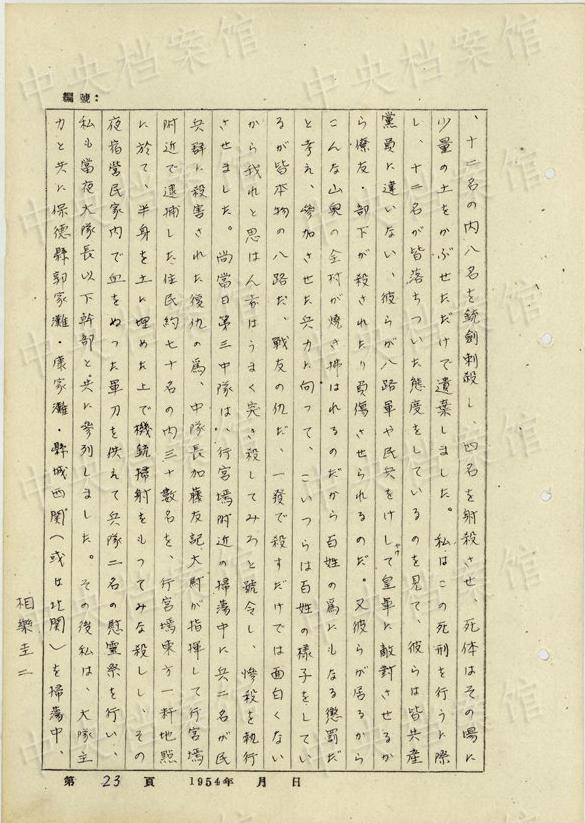 編號：
、十二名の内八名を銃劍刺殺し、四名を射殺させ、死体はその場に
少量の土をかぶせただけで遺棄しました。私はこの死刑を行うに際
し、十二名が皆落ちついた態度をしているのを見て、彼らは皆共産
党員に違いない、彼らが八路軍や民兵をけしかけて皇軍に敵対させるか
ら僚友・部下が殺されたり負傷させられるのだ。又彼らが居るから
こんな山奥の全村が焼き拂はれるのだから百姓の爲にもなる懲罰だ
と考え、参加させた兵力に向って、こいつらは百姓の様子をしてい
るが皆本物の八路だ、戦友の仇だ、一發で殺すだけでは面白くない
から我れと思はん者はうまく突き殺してみろと號令し、惨殺を執行
させました。尚當日第三中隊は、行宮塢附近の掃蕩中に兵二名が民
兵群に殺害された復仇の爲、中隊長加藤友記大尉が指揮して行宮塢
附近で逮捕した住民約七十名の内三十数名を、行宮塢東方一粁地點
に於て、半身を土に埋めた上で機銃掃射をもってみな殺しし、その
夜宿營民家内で血をぬった軍刀を供えて兵隊二名の慰靈祭を行い、
私も當夜大隊長以下幹部と共に参列しました。その後私は、大隊主
力と共に保德縣郭家灘・康家灘・縣城西関（或は北関）を掃蕩中、
相樂圭二
第 23 頁 1954年 月 日
中央档案馆
中央档案馆
中央档案馆
中央档案馆